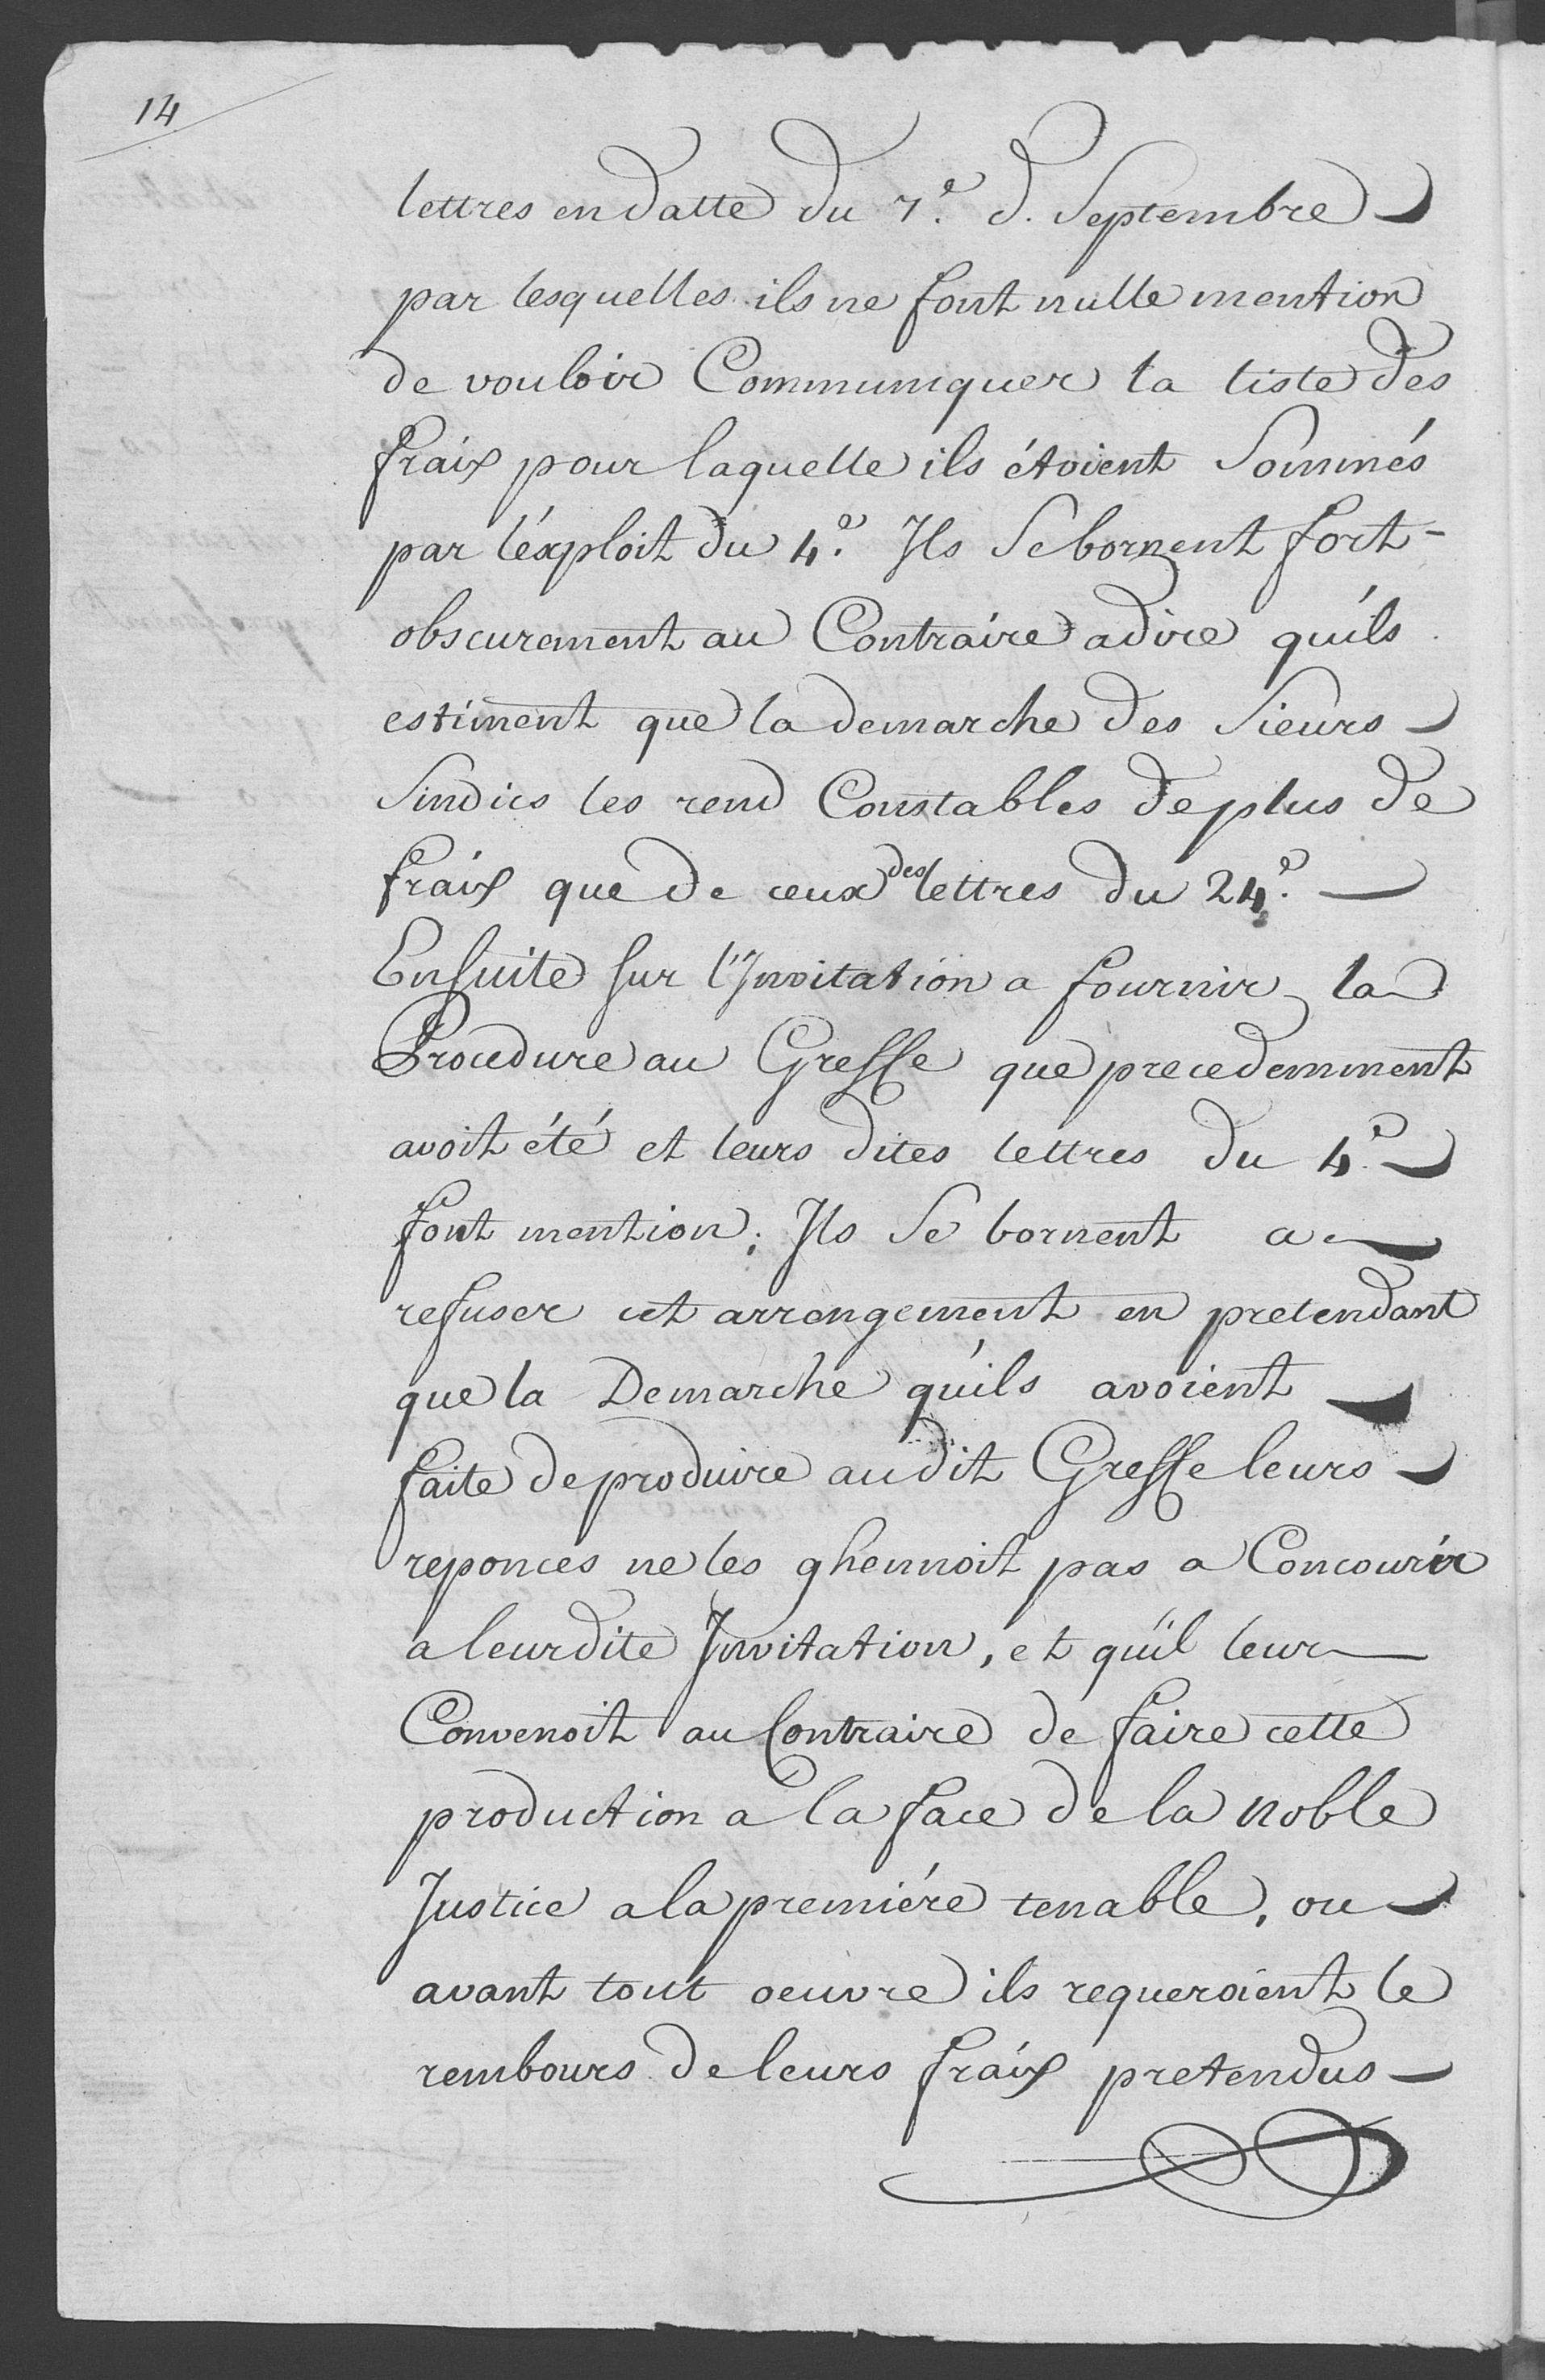 14
lettres en datte du 7.e d. Septembre
par lesquelles ils ne font nulle mention
de vouloir Communiquer la liste des
fraix pour laquelle ils étoient Sommés
par l'éxploit du 4.e Ils Se bornent fort-
obscurement au Contraire a dire qu'ils
estiment que la demarche des Sieurs
Sindics les rend Constables de plus de
fraix que de ceux des lettres du 24.e
Ensuite sur l'Invitation a fournir la
Procedure au Greffe que precedemment
avoit été et leurs dites lettres du 4.e
font mention; Ils Se bornent a
refuser cet arrangement en pretendant
que la Demarche qu'ils avoient
faite de produire au dit Greffe leurs
reponces ne les ghennoit pas a Concourir
a leur dite Invitation, et qu'il leur
Convenoit au Contraire de faire cette
production a la face de la noble
Justice a la premiére tenable, ou
avant tout oeuvre ils requeroient le
rembours de leurs fraix pretendus